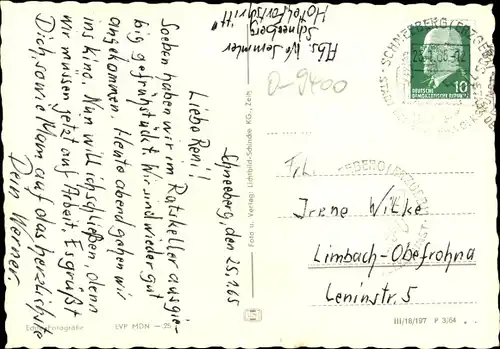 Schneeberg, den 25.1.65
Liebe Reni!
Soeben haben wir im Ratskeller ausgie-
big gefrühstückt. Wir sind wieder gut
angekommen. Heute abend gehen wir
ins Kino. Nun will ich schließen, denn
wir müssen jetzt auf Arbeit. Es grüßt
Dich, sowie Mam auf das herzlichste
Dein Werner.
Abs. W. Semmler
Schneeberg
Hotel Fortschritt
O-9400
SCHNEEBERG (ERZGEB)
DEUTSCHE
DEMOKRATISCHE REPUBLIK
10
Frl.
Irene Wilke
Limbach-Oberfrohna
Leninstr. 5
Foto u. Verlag: Lichtbild-Schincke KG., Zeitz
Echte Fotografie
EVP MDN —.25
III/18/197 P 3/64